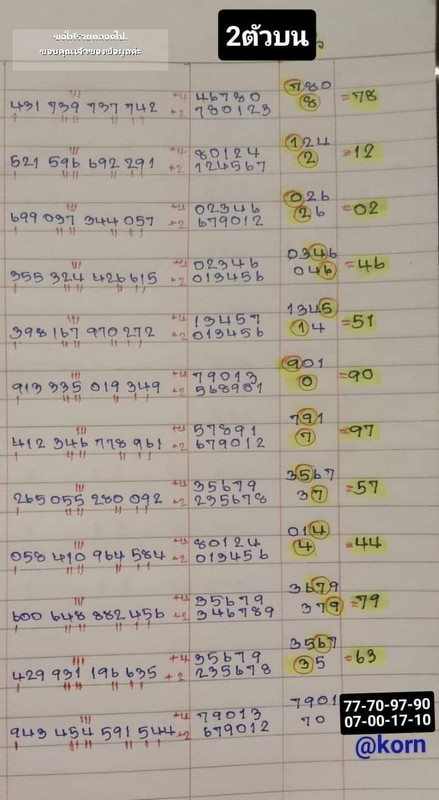 ขอให้รวยตลอดไป..
ขอบคุณเจ้าของข้อมูลค่ะ
2ตัวบน
431 739 737 742 +4 46780 780 =78
+2 780123 8
521 596 692 291 +4 80124 124 =12
+2 124567 2
699 037 344 057 +4 02346 026 =02
+2 679012 26
355 324 426 615 +4 02346 0346 =46
+2 013456 046
398 167 970 272 +4 13457 1345 =51
+2 013456 14
913 335 019 349 +4 79013 901 =90
+2 568901 0
412 346 778 961 +4 57891 791 =97
+2 679012 7
265 055 280 092 +4 35679 3567 =57
+2 235678 37
058 410 964 584 +4 80124 014 =44
+2 013456 4
600 648 882 456 +4 35679 3679 =79
+2 346789 379
429 931 196 635 +4 35679 3567 =63
+2 235678 35
943 454 591 544 +4 79013 7901
+2 679012 70
77-70-97-90
07-00-17-10
@korn